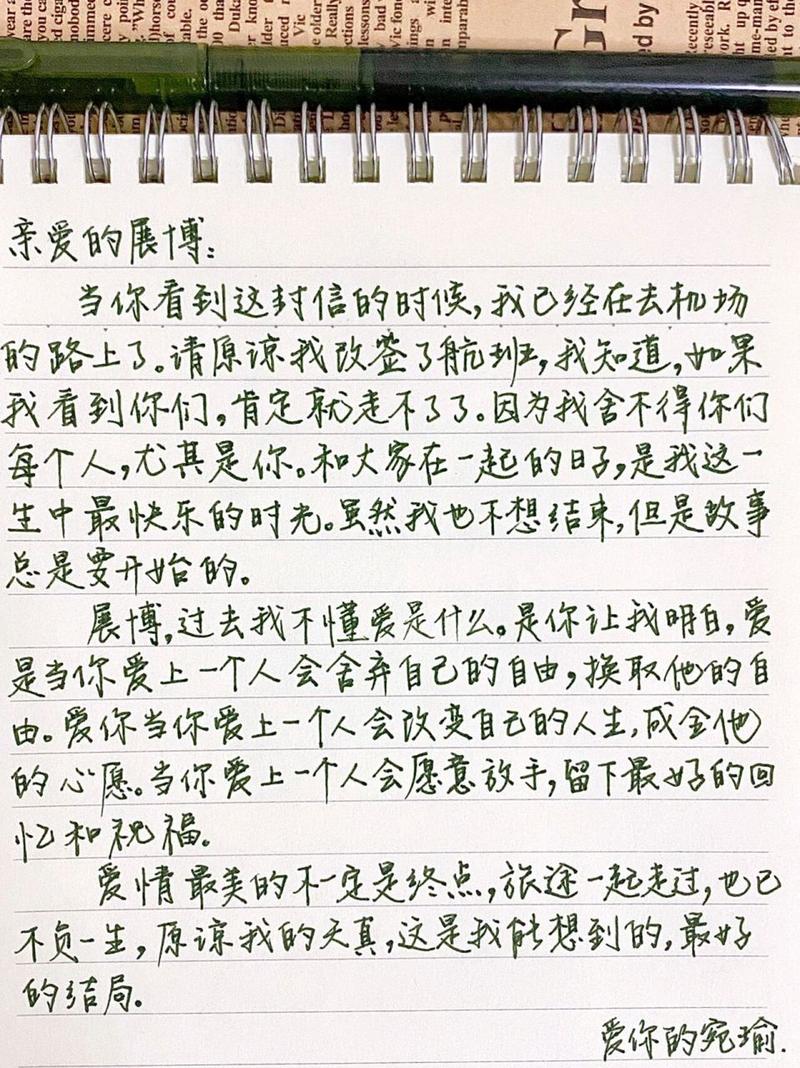 亲爱的展博：
当你看到这封信的时候，我已经在去机场
的路上了。请原谅我改签了航班，我知道，如果
我看到你们，肯定就走不了了。因为我舍不得你们
每个人，尤其是你。和大家在一起的日子，是我这一
生中最快乐的时光。虽然我也不想结束，但是故事
总是要开始的。
展博，过去我不懂爱是什么。是你让我明白，爱
是当你爱上一个人会舍弃自己的自由，换取他的自
由。爱你当你爱上一个人会改变自己的人生，成全他
的心愿。当你爱上一个人会愿意放手，留下最好的回
忆和祝福。
爱情最美的不一定是终点，旅途一起走过，也已
不负一生，原谅我的天真，这是我能想到的，最好
的结局。
爱你的宛瑜.